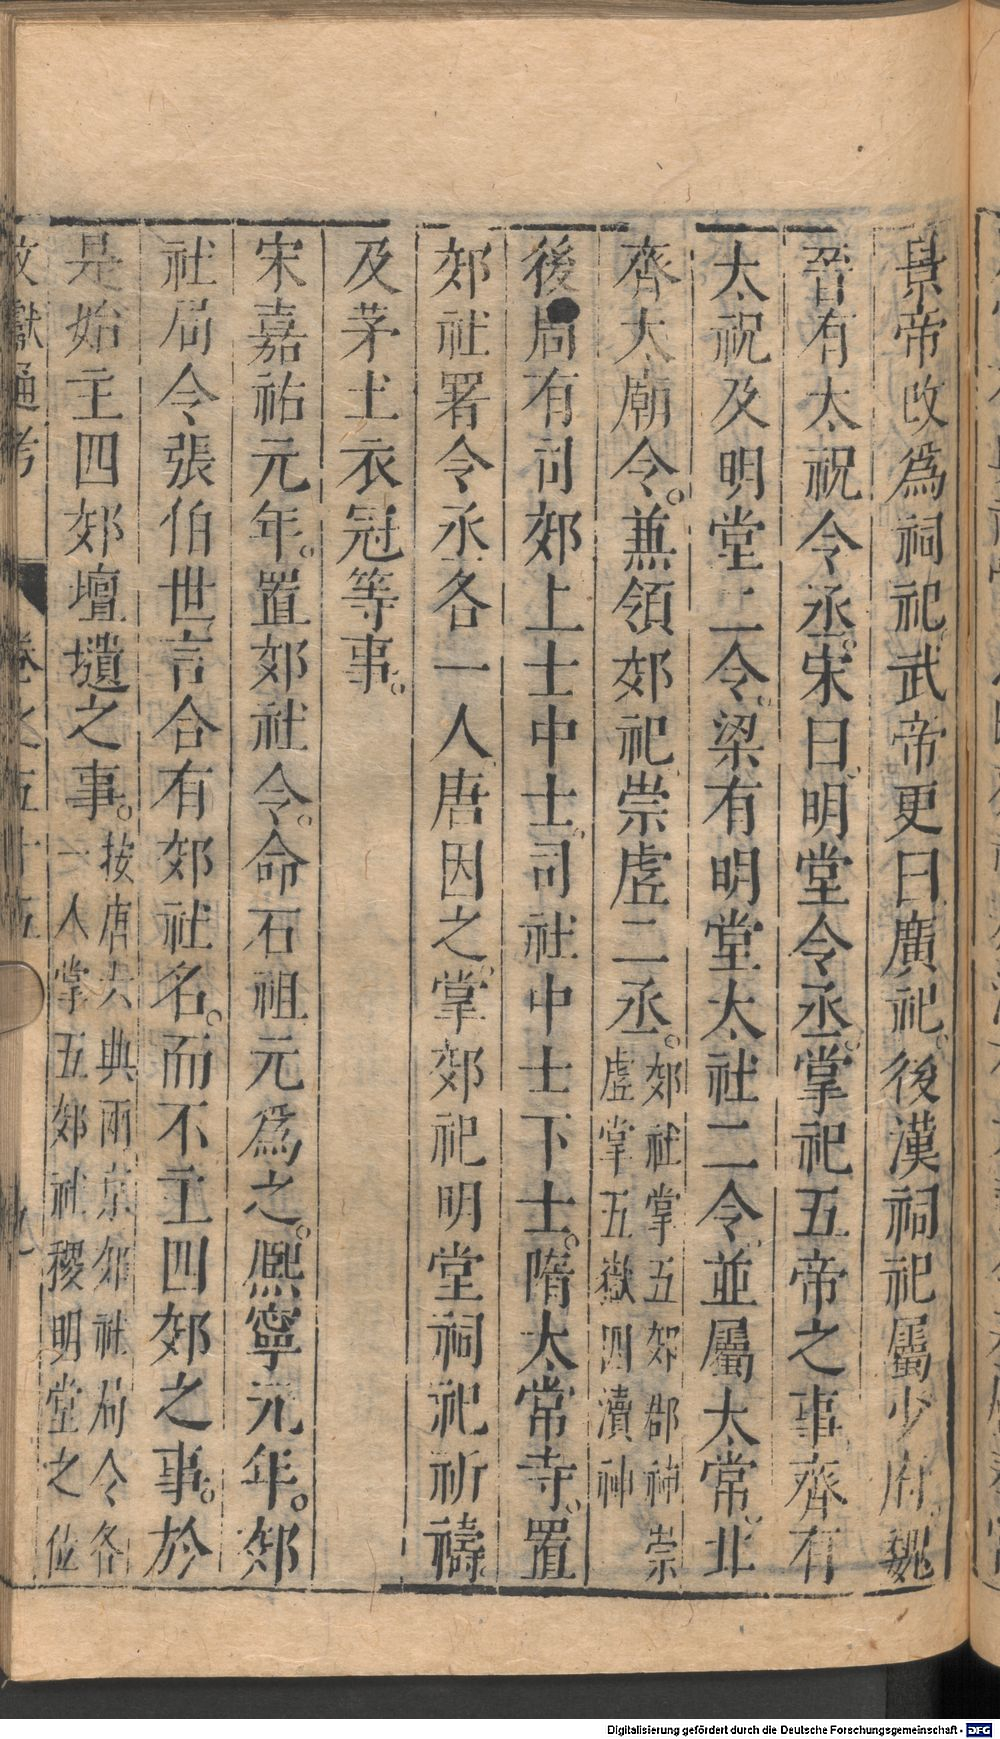 景帝改爲祠祀武帝更曰廣祀。後漢祠祀屬少府。魏
晉有太祝令丞。宋曰明堂令丞。掌祀五帝之事齊有
太祝及明堂二令。梁有明堂太社二令並屬太常。北
齊太廟令。兼領郊祀崇虛二丞。郊社掌五郊郡神崇
虛掌五嶽四瀆神
後周有司郊上士中士。司社中士下士。隋太常寺。置
郊社署令丞各一人唐因之。掌郊祀明堂祠祀祈禱
及茅土衣冠等事。
宋嘉祐元年。置郊社令。命石祖元爲之。熙寧元年。郊
社局令張伯世言合有郊社名。而不主四郊之事。於
是始主四郊壇壝之事。按唐六典兩京郊社局令各
一人掌五郊社稷明堂之位
文獻通考 卷之五十五 九
Digitalisierung gefördert durch die Deutsche Forschungsgemeinschaft - DFG